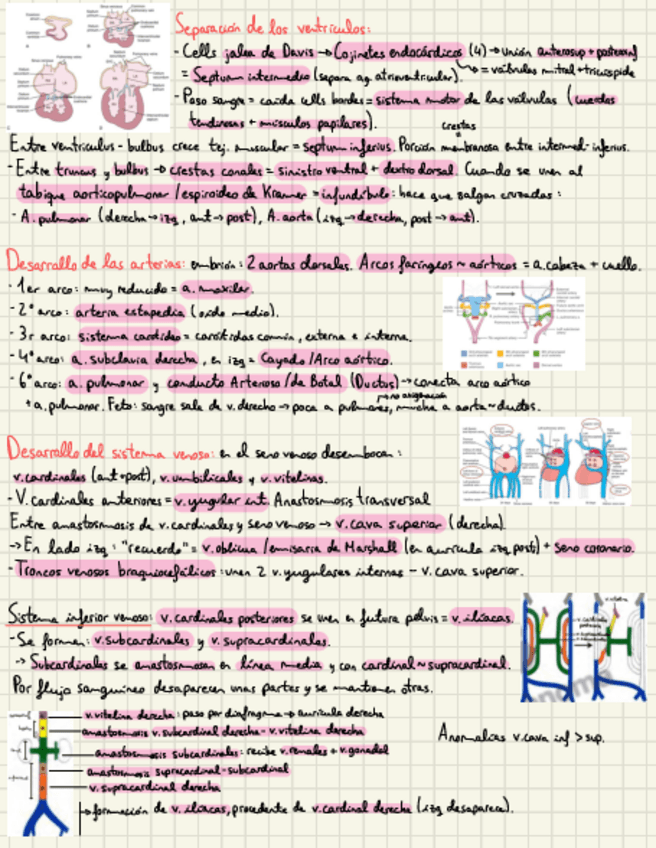 Separación de los ventrículos:
- Cells jalea de Davis → Cojinetes endocárdicos (4) → unión anterosup + posteroinf
= Septum intermedio (separa ag. atrioventricular). = válvulas mitral + tricúspide
- Paso sangre = caída cells bordes = sistema motor de las válvulas (cuerdas
tendinosas + músculos papilares).
crestas
Entre ventriculus - bulbus crece tej. muscular = septum inferius. Porción membranosa entre intermed-inferius.
- Entre truncus y bulbus → crestas conales = sinistro ventral + dextro dorsal. Cuando se unen al
tabique aorticopulmonar / espiroideo de Kramer = infundíbulo: hace que salgan cruzadas:
- A. pulmonar (derecha → izq, ant → post), A. aorta (izq → derecha, post → ant).
Desarrollo de las arterias: embrión: 2 aortas dorsales. Arcos faríngeos ~ aórticos = a. cabeza + cuello.
- 1er arco: muy reducido = a. maxilar.
- 2º arco: arteria estapedia (oído medio).
- 3r arco: sistema carotídeo = carótidas común, externa e interna.
- 4º arco: a. subclavia derecha, en izq = Cayado/Arco aórtico.
- 6º arco: a. pulmonar y conducto Arterioso/de Botal (Ductus) → conecta arco aórtico
+ a. pulmonar. Feto: sangre sale de v. derecho → poca a pulmones, mucha a aorta ~ ductus.
→ no oxigenación
Desarrollo del sistema venoso: en el seno venoso desembocan:
v. cardinales (ant + post), v. umbilicales y v. vitelinas.
- V. cardinales anteriores = v. yugular int. Anastosmosis transversal
Entre anastosmosis de v. cardinales y seno venoso → v. cava superior (derecha).
→ En lado izq: "recuerdo" = v. oblicua / emisaria de Marshall (en aurícula izq post) + seno coronario.
- Troncos venosos braquiocefálicos: unen 2 v. yugulares internas - v. cava superior.
Sistema inferior venoso: v. cardinales posteriores se unen en futura pelvis = v. ilíacas.
- Se forman: v. subcardinales y v. supracardinales.
→ Subcardinales se anastosmosan en línea media y con cardinal ~ supracardinal.
Por flujo sanguíneo desaparecen unas partes y se mantienen otras.
v. vitelina derecha: paso por diafragma → aurícula derecha
anastosmosis v. subcardinal derecha - v. vitelina derecha
Anomalías v. cava inf > sup.
anastosmosis subcardinales: recibe v. renales + v. gonadal
anastosmosis supracardinal - subcardinal
v. supracardinal derecha
→ formación de v. ilíacas, procedente de v. cardinal derecha (izq desaparece).